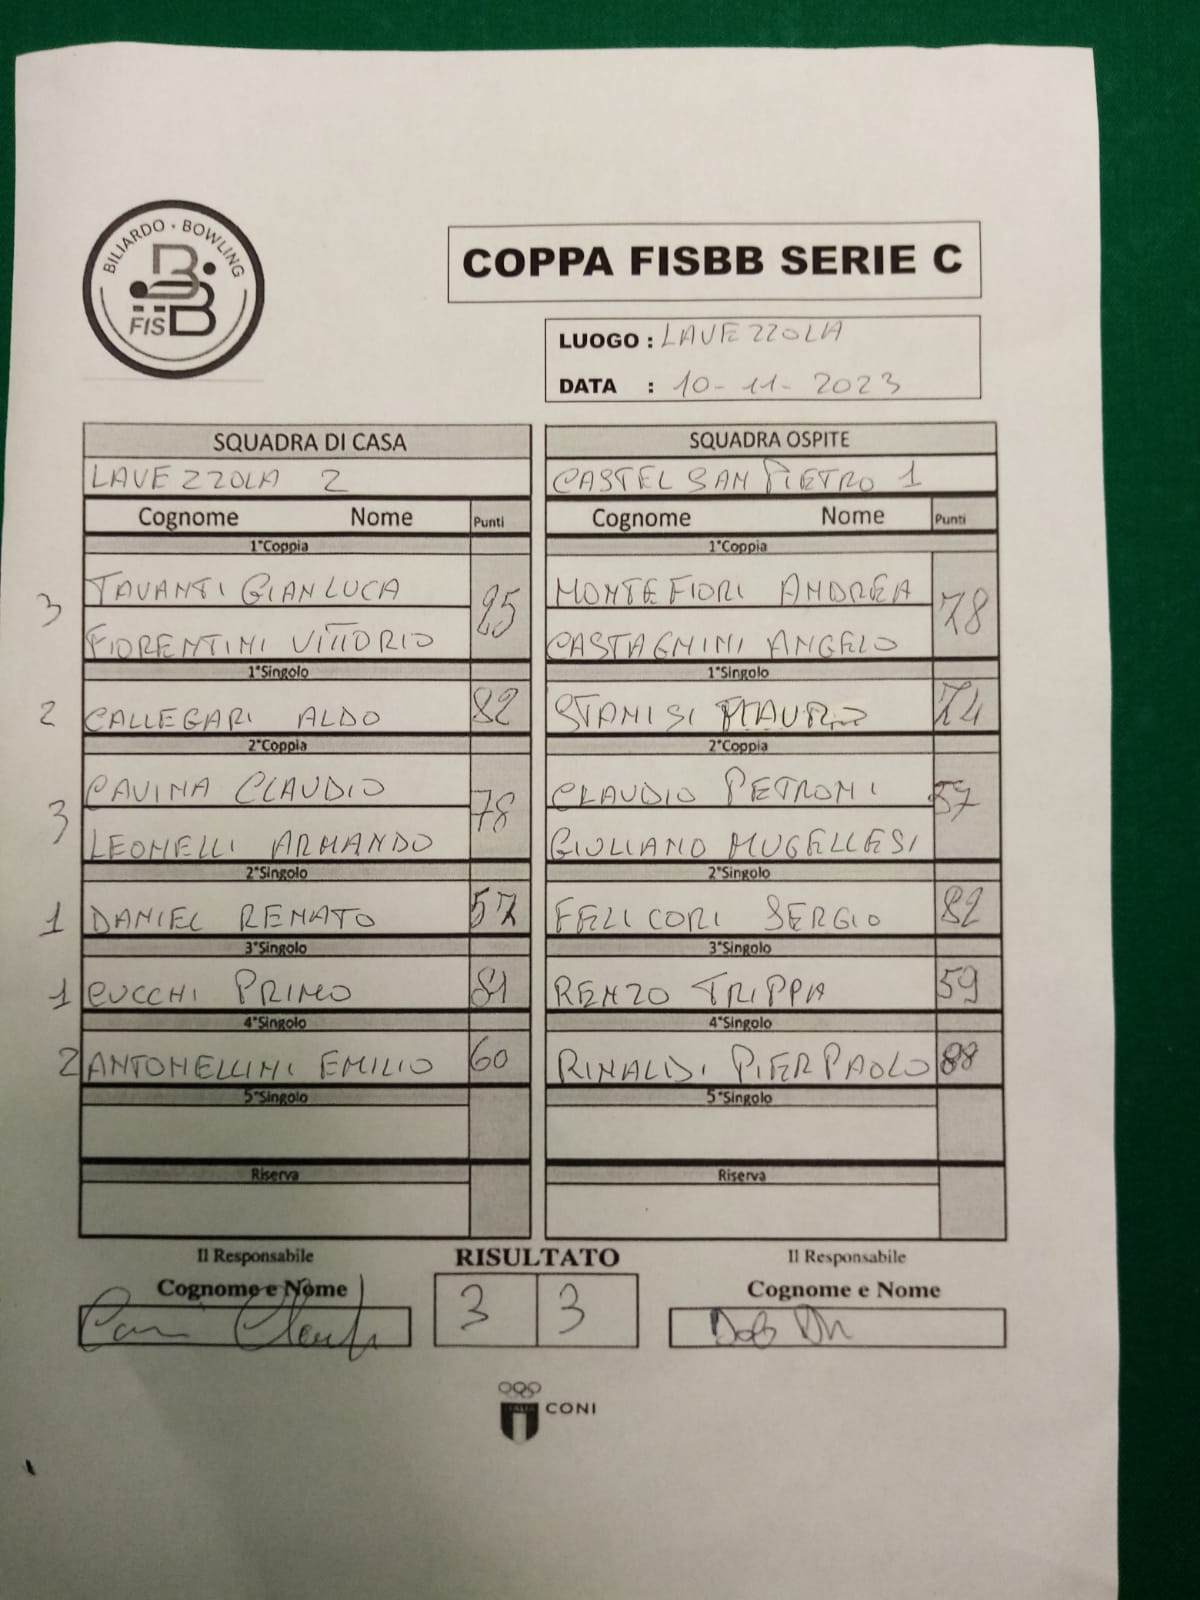 BILIARDO · BOWLING
FISBB
COPPA FISBB SERIE C
LUOGO : LAVEZZOLA
DATA : 10-11-2023
SQUADRA DI CASA SQUADRA OSPITE
LAVEZZOLA 2 CASTEL SAN PIETRO 1
Cognome Nome Punti Cognome Nome Punti
1°Coppia 1°Coppia
3 TAVANTI GIANLUCA MONTEFIORI ANDREA 78
FIORENTINI VITTORIO CASTAGNINI ANGELO
1°Singolo 1°Singolo
2 CALLEGARI ALDO 82 STANISI MAURO 74
2°Coppia 2°Coppia
3 CAVINA CLAUDIO 78 CLAUDIO PETRONI 57
LEONELLI ARMANDO GIULIANO MUGELLESI
2°Singolo 2°Singolo
1 DANIEL RENATO 57 FELICORI SERGIO 82
3°Singolo 3°Singolo
1 CUCCHI PRIMO 81 RENZO TRIPPA 59
4°Singolo 4°Singolo
2 ANTONELLINI EMILIO 60 RINALDI PIERPAOLO 88
5°Singolo 5°Singolo
Riserva Riserva
Il Responsabile RISULTATO Il Responsabile
Cognome e Nome 3 3 Cognome e Nome
ITALIA
CONI